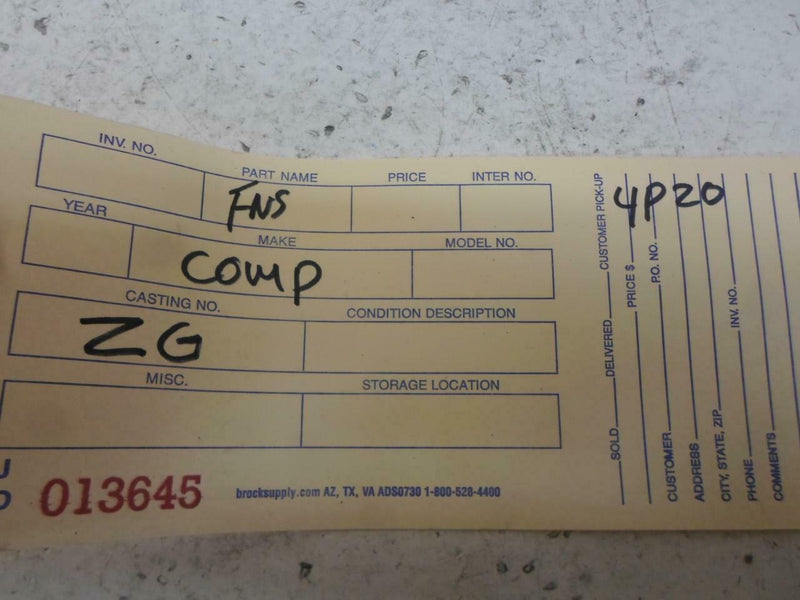 INV. NO.
PART NAME PRICE INTER NO.
FNS
YEAR MAKE MODEL NO.
COMP
CASTING NO. CONDITION DESCRIPTION
ZG
MISC. STORAGE LOCATION
013645
brocksupply.com AZ, TX, VA ADS0730 1-800-528-4400
4P20
SOLD DELIVERED CUSTOMER PICK-UP
PRICE $
CUSTOMER P.O. NO.
ADDRESS
CITY, STATE, ZIP
PHONE INV. NO.
COMMENTS